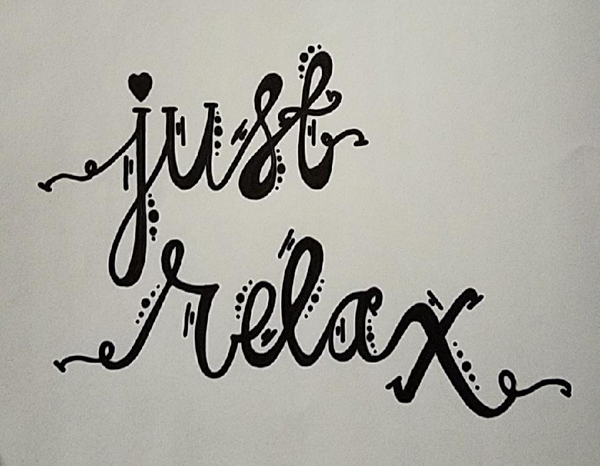 just
relax